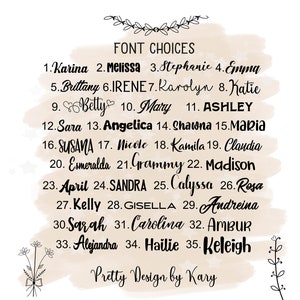 FONT CHOICES
1.Karina 2.Melissa 3.Stephanie 4.Emma
5.Brittany 6.IRENE 7.Karolyn 8.Katie
9.Betty 10. Mary 11. ASHLEY
12.Sara 13.Angelica 14.Shawna 15.MARIA
16.SUSANA 17.Nicole 18.Kamila 19.Claudia
20.Esmeralda 21.Grammy 22.Madison
23.April 24.SANDRA 25.Calyssa 26.Rosa
27.Kelly 28.GISELLA 29.Andreina
30.Sarah 31.Carolina 32.AMBUR
33.Alejandra 34. Hailie 35.Keleigh
Pretty Design by Kary